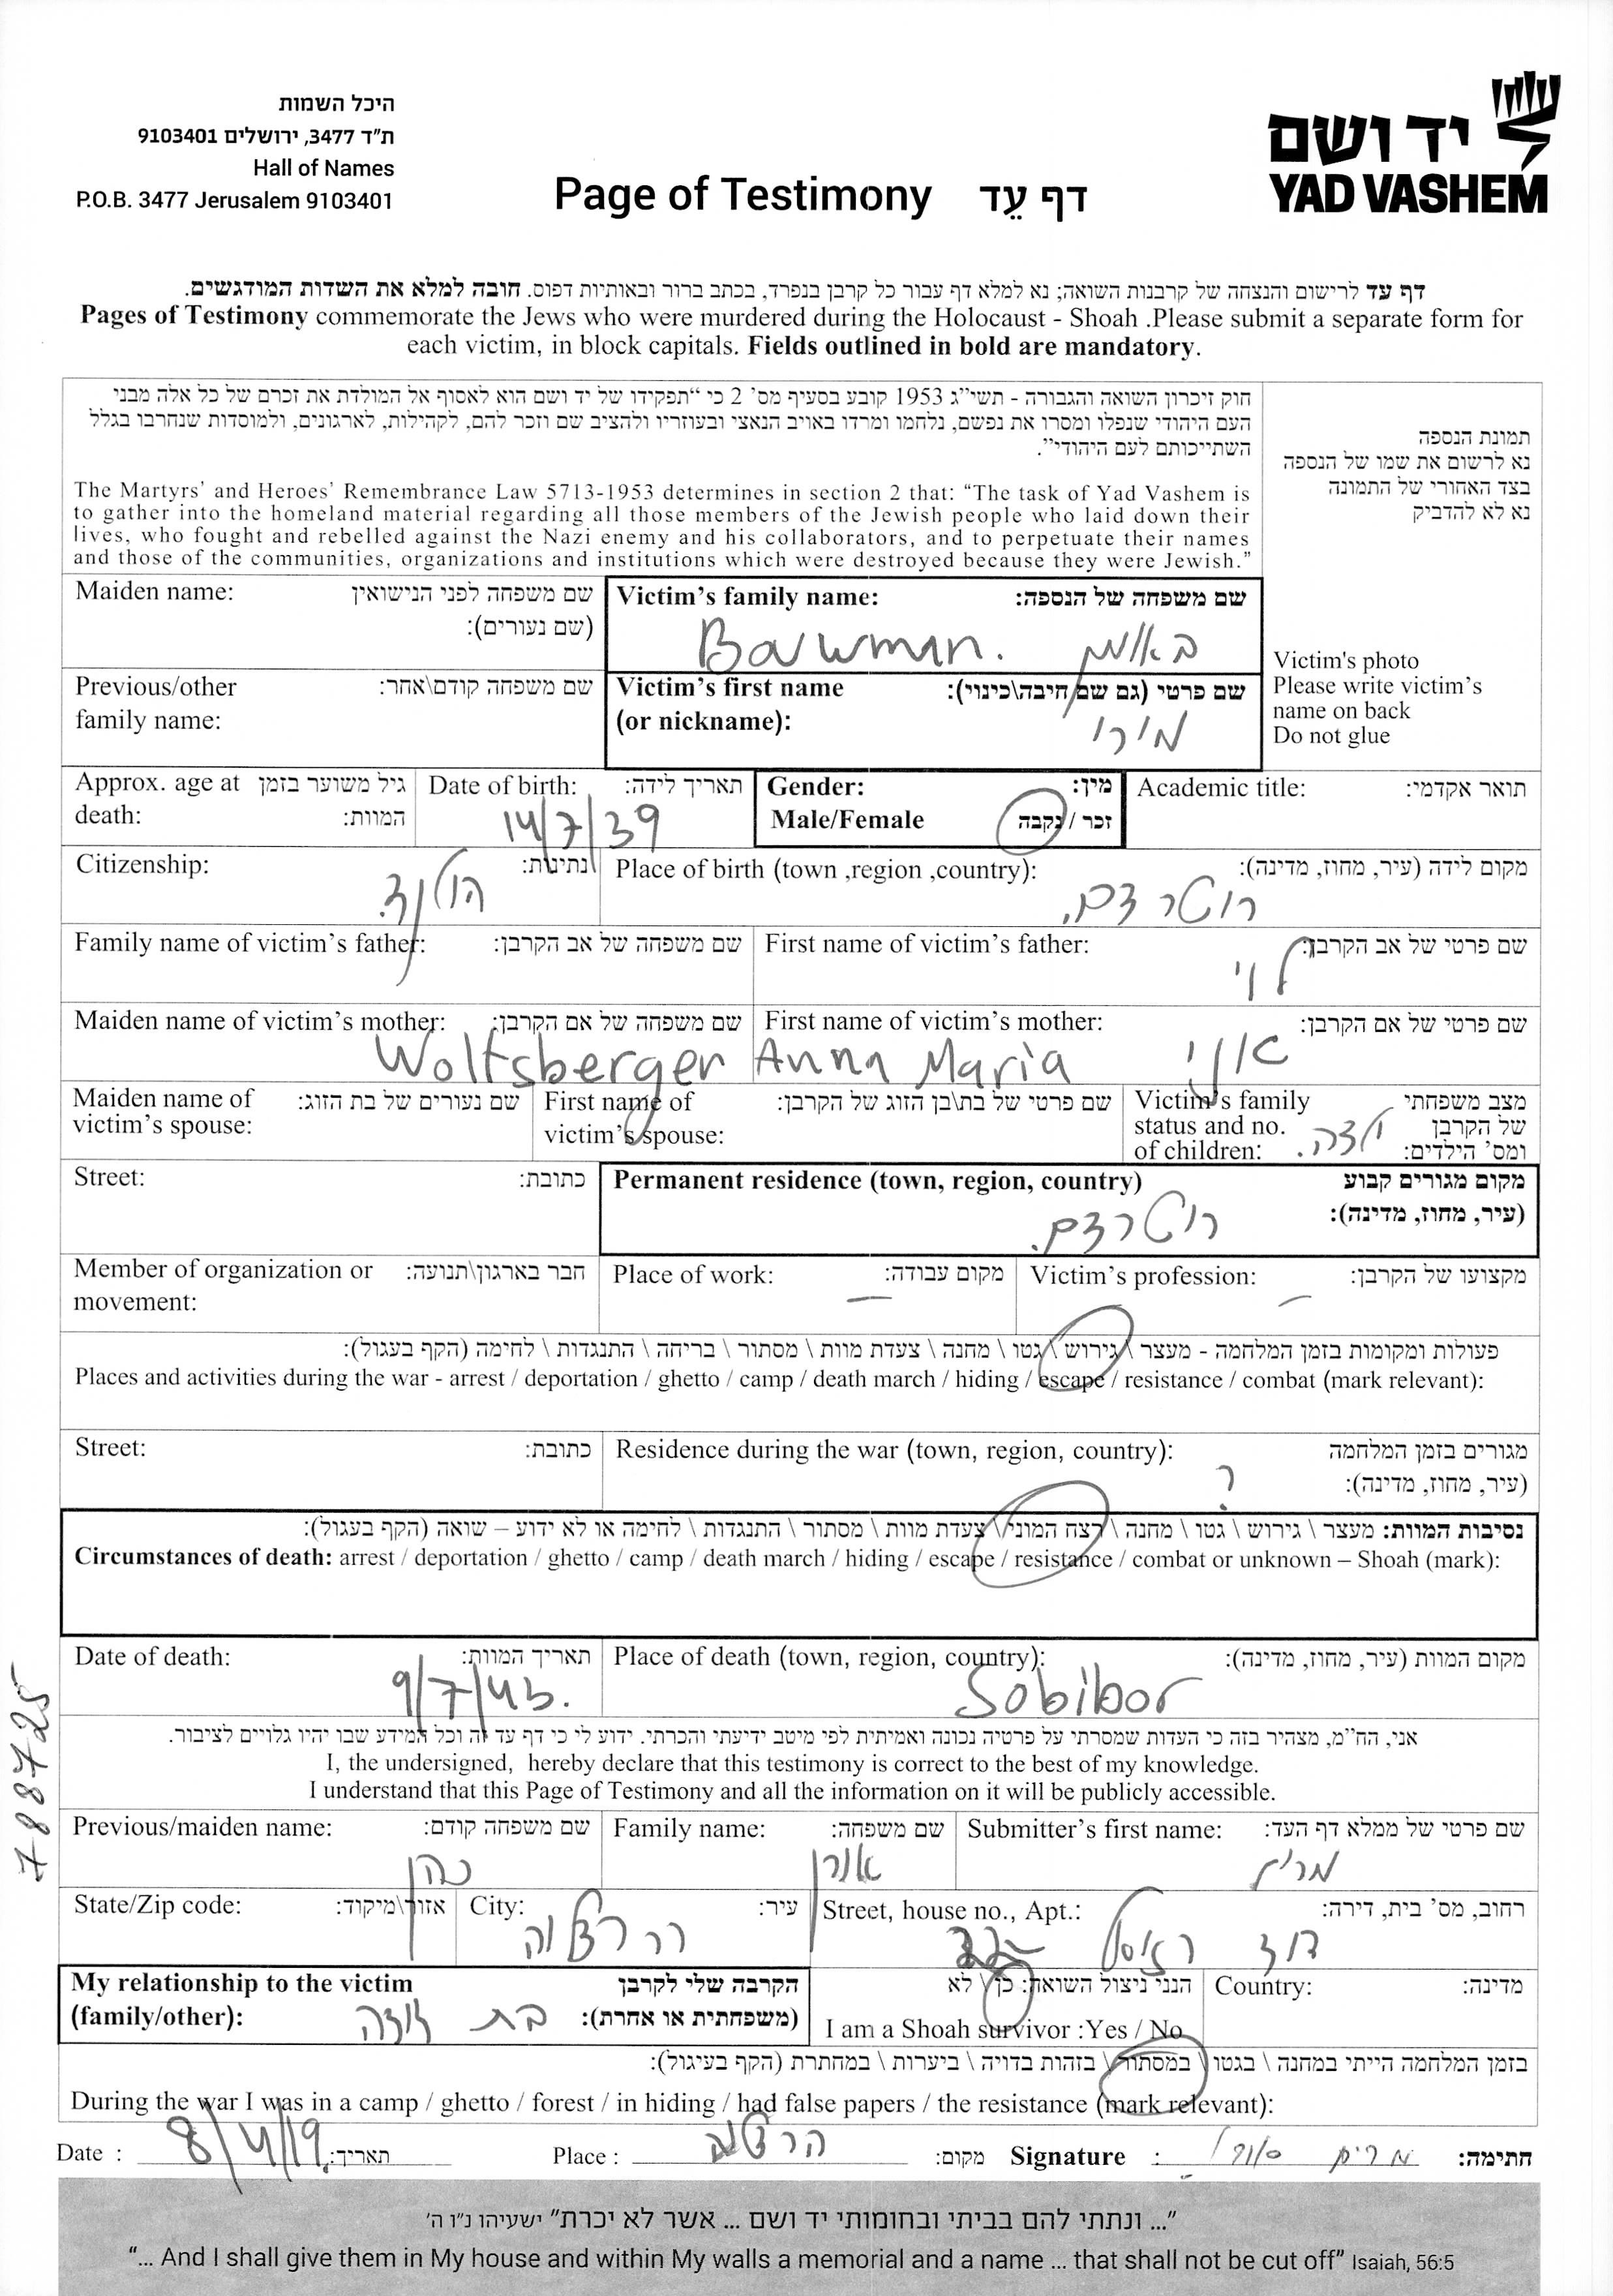 היכל השמות
ת״ד 3477, ירושלים 9103401
Hall of Names
P.O.B. 3477 Jerusalem 9103401
Page of Testimony דף עֵד
יד ושם
YAD VASHEM
דף עד לרישום והנצחה של קרבנות השואה; נא למלא דף עבור כל קרבן בנפרד, בכתב ברור ובאותיות דפוס. חובה למלא את השדות המודגשים.
Pages of Testimony commemorate the Jews who were murdered during the Holocaust - Shoah .Please submit a separate form for
each victim, in block capitals. Fields outlined in bold are mandatory.
חוק זיכרון השואה והגבורה - תשי״ג 1953 קובע בסעיף מס' 2 כי ״תפקידו של יד ושם הוא לאסוף אל המולדת את זכרם של כל אלה מבני
העם היהודי שנפלו ומסרו את נפשם, נלחמו ומרדו באויב הנאצי ובעוזריו ולהציב שם וזכר להם, לקהילות, לארגונים, ולמוסדות שנחרבו בגלל
השתייכותם לעם היהודי״.
The Martyrs' and Heroes' Remembrance Law 5713-1953 determines in section 2 that: “The task of Yad Vashem is
to gather into the homeland material regarding all those members of the Jewish people who laid down their
lives, who fought and rebelled against the Nazi enemy and his collaborators, and to perpetuate their names
and those of the communities, organizations and institutions which were destroyed because they were Jewish.”
תמונת הנספה
נא לרשום את שמו של הנספה
בצד האחורי של התמונה
נא לא להדביק
Victim's photo
Please write victim's
name on back
Do not glue
Maiden name: שם משפחה לפני הנישואין
(שם נעורים):
Victim's family name: שם משפחה של הנספה:
Bouwman. באומן
Previous/other שם משפחה קודם\אחר:
family name:
Victim's first name שם פרטי (גם שם חיבה\כינוי):
(or nickname):
מירי
Approx. age at גיל משוער בזמן
death: המוות:
Date of birth: תאריך לידה:
14/7/39
Gender: מין:
Male/Female זכר / נקבה
Academic title: תואר אקדמי:
Citizenship: נתינות:
הולנד.
Place of birth (town ,region ,country): מקום לידה (עיר, מחוז, מדינה):
רוטרדם.
Family name of victim's father: שם משפחה של אב הקרבן:
First name of victim's father: שם פרטי של אב הקרבן:
לוי
Maiden name of victim's mother: שם משפחה של אם הקרבן:
Wolfsberger
First name of victim's mother: שם פרטי של אם הקרבן:
Anna Maria אני
Maiden name of שם נעורים של בת הזוג:
victim's spouse:
First name of שם פרטי של בת\בן הזוג של הקרבן:
victim's spouse:
Victim's family מצב משפחתי
status and no. של הקרבן
of children: ומס' הילדים:
ילדה.
Street: כתובת:
Permanent residence (town, region, country) מקום מגורים קבוע
(עיר, מחוז, מדינה):
רוטרדם.
Member of organization or חבר בארגון\תנועה:
movement:
Place of work: מקום עבודה:
—
Victim's profession: מקצועו של הקרבן:
—
פעולות ומקומות בזמן המלחמה - מעצר \ גירוש \ גטו \ מחנה \ צעדת מוות \ מסתור \ בריחה \ התנגדות \ לחימה (הקף בעגול):
Places and activities during the war - arrest / deportation / ghetto / camp / death march / hiding / escape / resistance / combat (mark relevant):
Street: כתובת:
Residence during the war (town, region, country): מגורים בזמן המלחמה
(עיר, מחוז, מדינה):
?
נסיבות המוות: מעצר \ גירוש \ גטו \ מחנה \ רצח המוני \ צעדת מוות \ מסתור \ התנגדות \ לחימה או לא ידוע – שואה (הקף בעגול):
Circumstances of death: arrest / deportation / ghetto / camp / death march / hiding / escape / resistance / combat or unknown – Shoah (mark):
Date of death: תאריך המוות:
9/7/43.
Place of death (town, region, country): מקום המוות (עיר, מחוז, מדינה):
Sobibor
אני, הח״מ, מצהיר בזה כי העדות שמסרתי על פרטיה נכונה ואמיתית לפי מיטב ידיעתי והכרתי. ידוע לי כי דף עד זה וכל המידע שבו יהיו גלויים לציבור.
I, the undersigned, hereby declare that this testimony is correct to the best of my knowledge.
I understand that this Page of Testimony and all the information on it will be publicly accessible.
Previous/maiden name: שם משפחה קודם:
כהן
Family name: שם משפחה:
Submitter's first name: שם פרטי של ממלא דף העד:
מרים
State/Zip code: אזור\מיקוד:
City: עיר:
הרצליה
Street, house no., Apt.: רחוב, מס' בית, דירה:
דוד רזיאל
My relationship to the victim הקרבה שלי לקרבן
(family/other): (משפחתית או אחרת):
בת דודה
הנני ניצול השואה: כן \ לא
I am a Shoah survivor :Yes / No
Country: מדינה:
בזמן המלחמה הייתי במחנה \ בגטו \ במסתור \ בזהות בדויה \ ביערות \ במחתרת (הקף בעיגול):
During the war I was in a camp / ghetto / forest / in hiding / had false papers / the resistance (mark relevant):
Date : 8/4/19 תאריך:
Place : הרצליה מקום:
Signature : מרים חתימה:
״... ונתתי להם בביתי ובחומותי יד ושם ... אשר לא יכרת״ ישעיהו נ״ו ה'
“... And I shall give them in My house and within My walls a memorial and a name ... that shall not be cut off” Isaiah, 56:5
788725